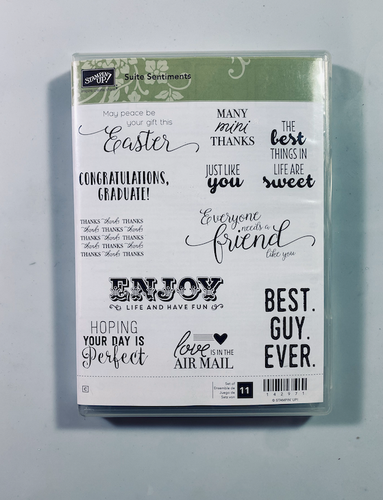 STAMPIN' UP!
Suite Sentiments
May peace be
your gift this
Easter
MANY
mini
THANKS
THE
best
THINGS IN
LIFE ARE
sweet
CONGRATULATIONS,
GRADUATE!
JUST LIKE
you
THANKS thanks THANKS
thanks THANKS thanks
THANKS thanks THANKS
thanks THANKS thanks
THANKS thanks THANKS
Everyone
needs a
friend
like you
ENJOY
LIFE AND HAVE FUN
BEST.
GUY.
EVER.
HOPING
YOUR DAY IS
Perfect
love IS IN THE
AIR MAIL
Set of
Ensemble de
Juego de
11
142971
© STAMPIN' UP!